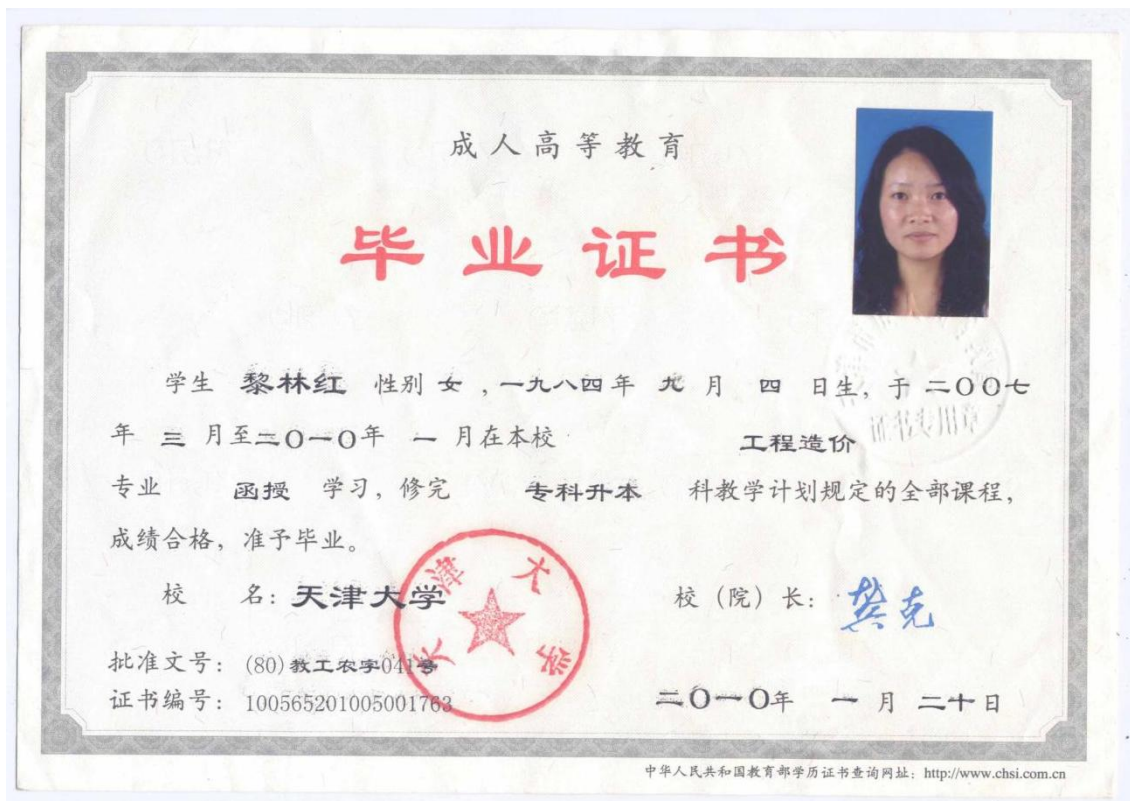 成人高等教育
毕业证书
学生 黎林红 性别 女 ,一九八四年 九 月 四 日生, 于 二〇〇七
年 三 月至二〇一〇年 一 月在本校 工程造价
专业 函授 学习, 修完 专科升本 科教学计划规定的全部课程,
成绩合格, 准予毕业。
校 名: 天津大学 校 (院) 长:
天津大学
批准文号: (80) 教工农字041号
证书编号: 100565201005001763 二〇一〇年 一 月 二十日
中华人民共和国教育部学历证书查询网址: http://www.chsi.com.cn